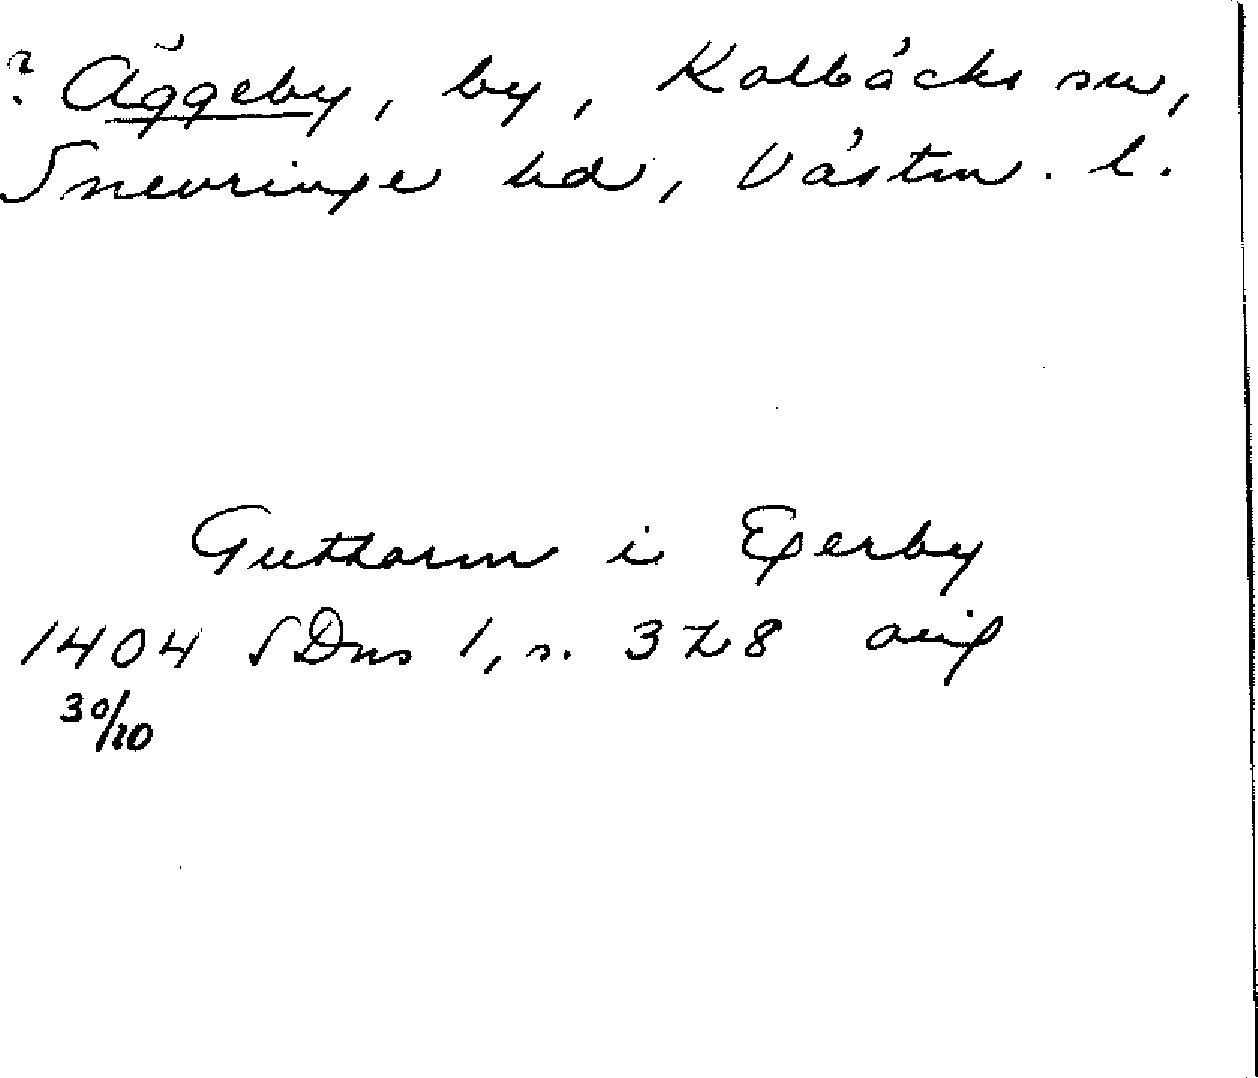 ? Äggeby, by, Kolbäcks sn,
Snevringe hd, Västm. l.
Guttorm i Egerby
1404 SDns 1, s. 328 orig
30/10